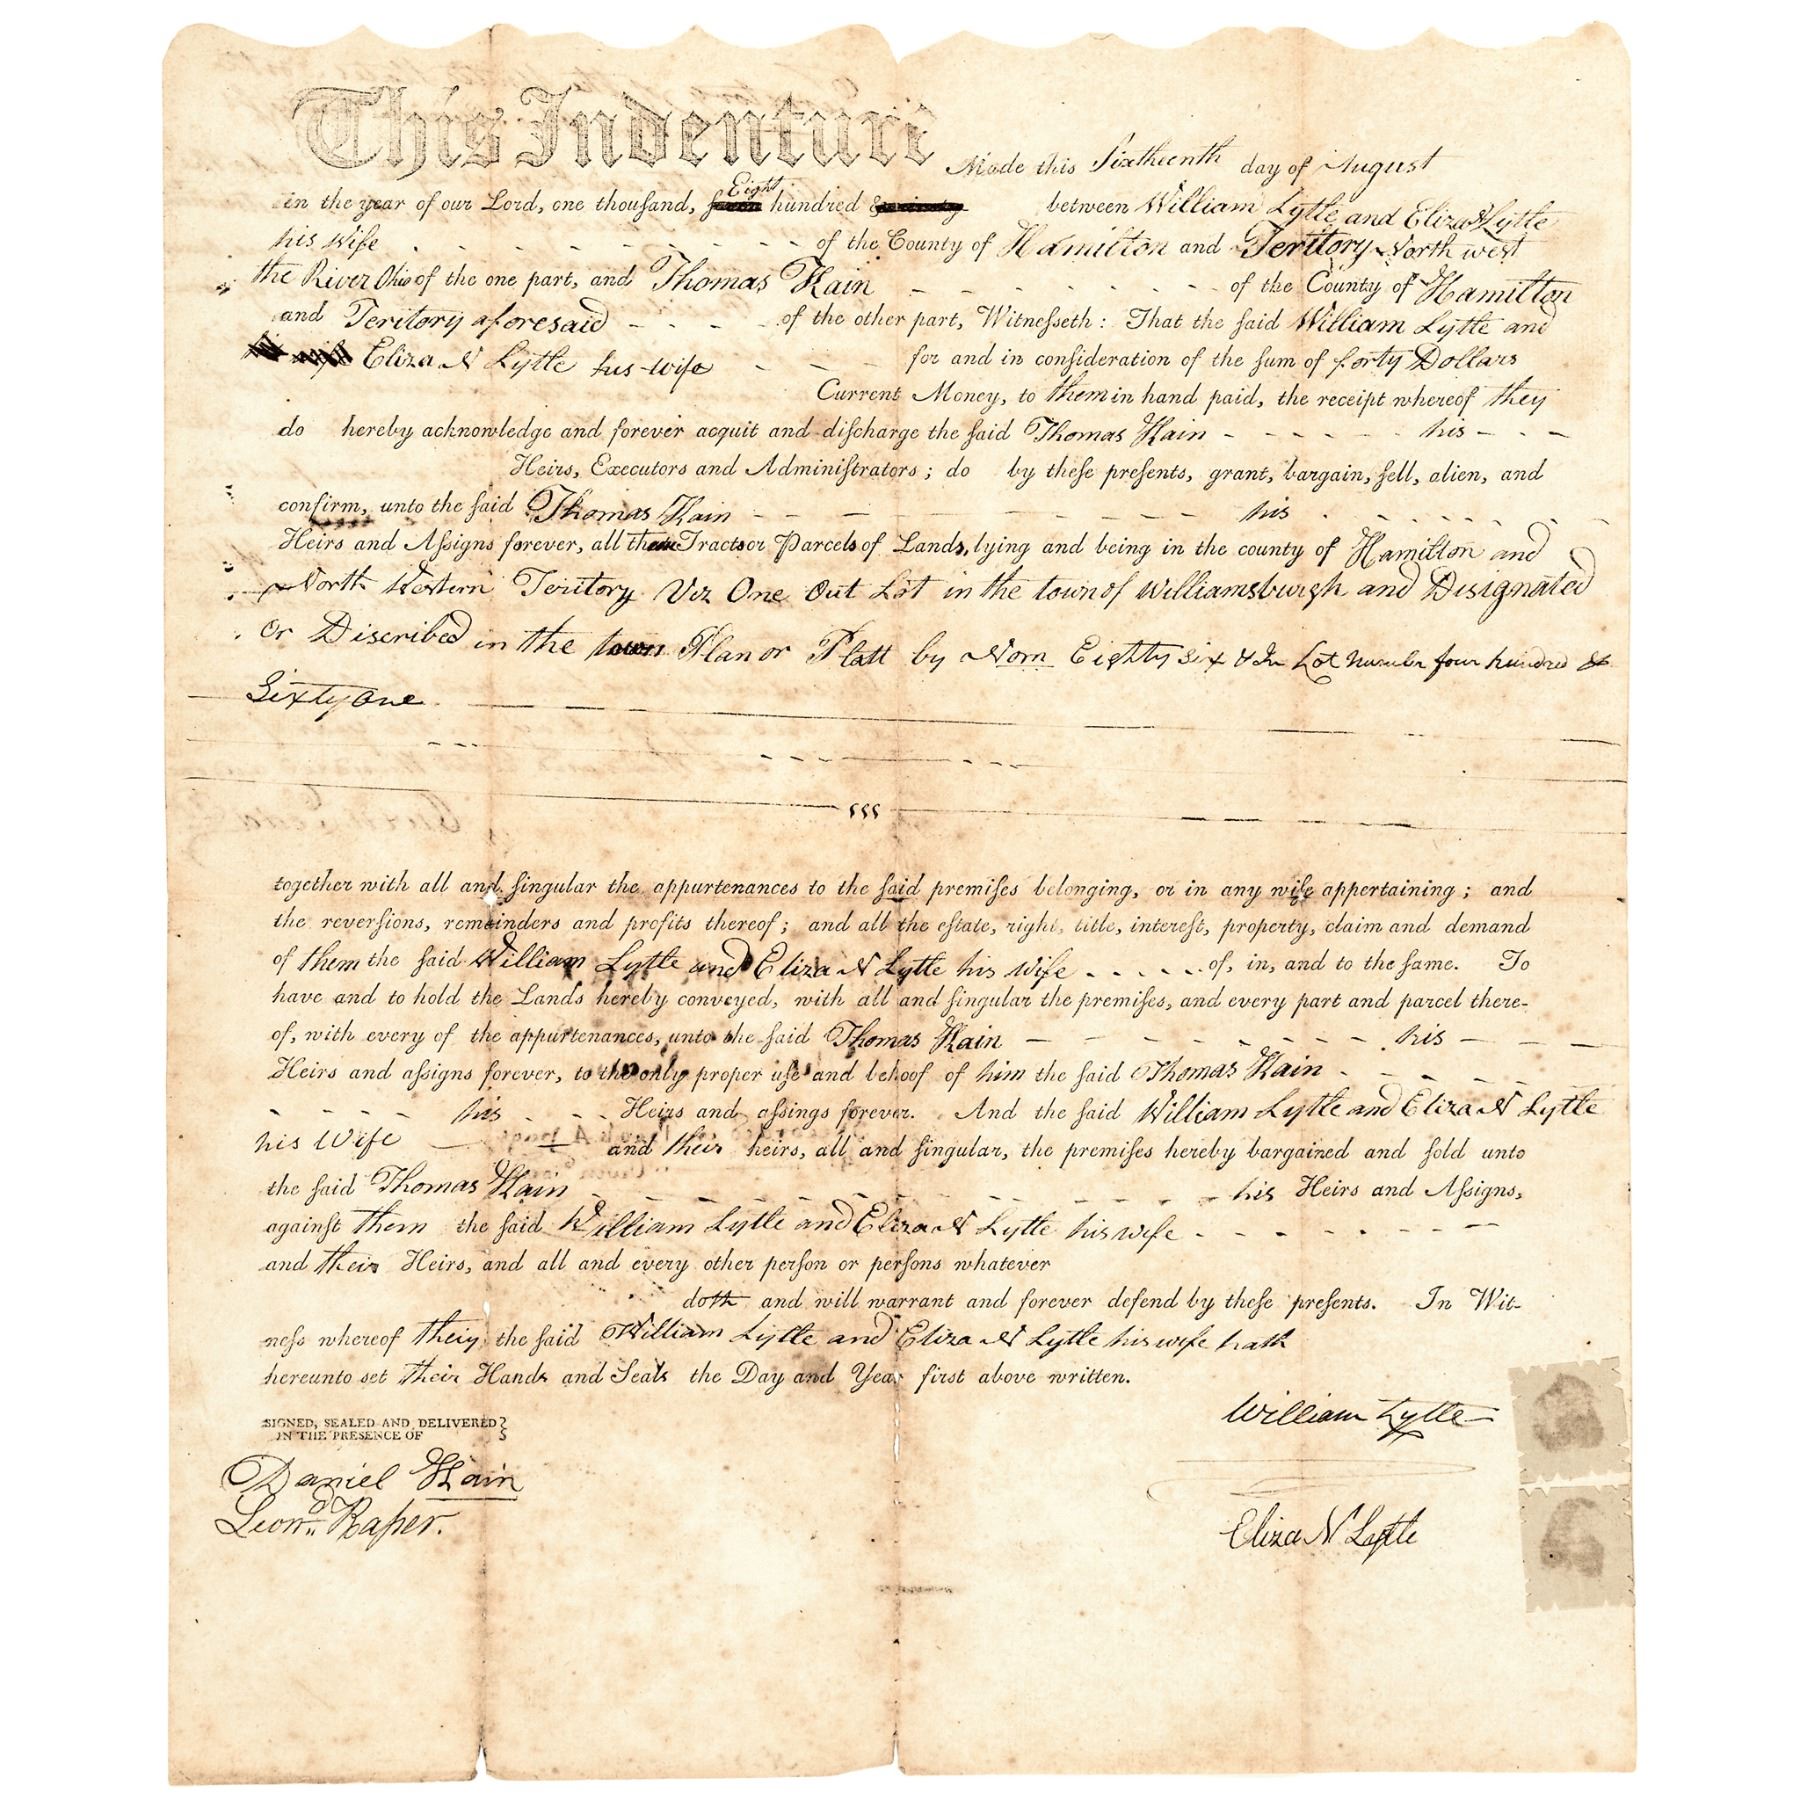 This Indenture Made this Sixtheenth day of August
in the year of our Lord, one thouſand, Eight hundred & between William Lytle and Eliza N Lytle
his Wife of the County of Hamilton and Teritory North west
the River Ohio of the one part, and Thomas Kain of the County of Hamilton
and Teritory aforesaid of the other part, Witneſseth: That the ſaid William Lytle and
Eliza N Lytle his wife for and in conſideration of the ſum of forty Dollars
Current Money, to them in hand paid, the receipt whereof they
do hereby acknowledge and forever acquit and diſcharge the ſaid Thomas Kain his
Heirs, Executors and Adminiſtrators; do by theſe preſents, grant, bargain, ſell, alien, and
confirm, unto the ſaid Thomas Kain his
Heirs and Aſsigns forever, all Tracts or Parcels of Lands, lying and being in the county of Hamilton and
North Western Teritory Viz One Out Lot in the town of Williamsburgh and Designated
or Discribed in the town Plan or Platt by Nom Eighty six & In Lot Number four hundred &
Sixty One
together with all and ſingular the appurtenances to the ſaid premiſes belonging, or in any wiſe appertaining; and
the reverſions, remainders and profits thereof; and all the eſtate, right, title, intereſt, property, claim and demand
of them the ſaid William Lytle and Eliza N Lytle his Wife of, in, and to the ſame. To
have and to hold the Lands hereby conveyed, with all and ſingular the premiſes, and every part and parcel there-
of, with every of the appurtenances, unto the ſaid Thomas Kain his
Heirs and aſsigns forever, to the only proper uſe and behoof of him the ſaid Thomas Kain
his Heirs and aſsings forever. And the ſaid William Lytle and Eliza N Lytle
his Wife and their heirs, all and ſingular, the premiſes hereby bargained and ſold unto
the ſaid Thomas Kain his Heirs and Aſsigns,
againſt them the ſaid William Lytle and Eliza N Lytle his wife
and their Heirs, and all and every other perſon or perſons whatever
doth and will warrant and forever defend by theſe preſents. In Wit-
neſs whereof they the ſaid William Lytle and Eliza N Lytle his wife hath
hereunto set their Hands and Seals the Day and Year first above written.
SIGNED, SEALED AND DELIVERED
IN THE PRESENCE OF
William Lytle
Daniel Kain
Leond. Raper.
Eliza N Lytle